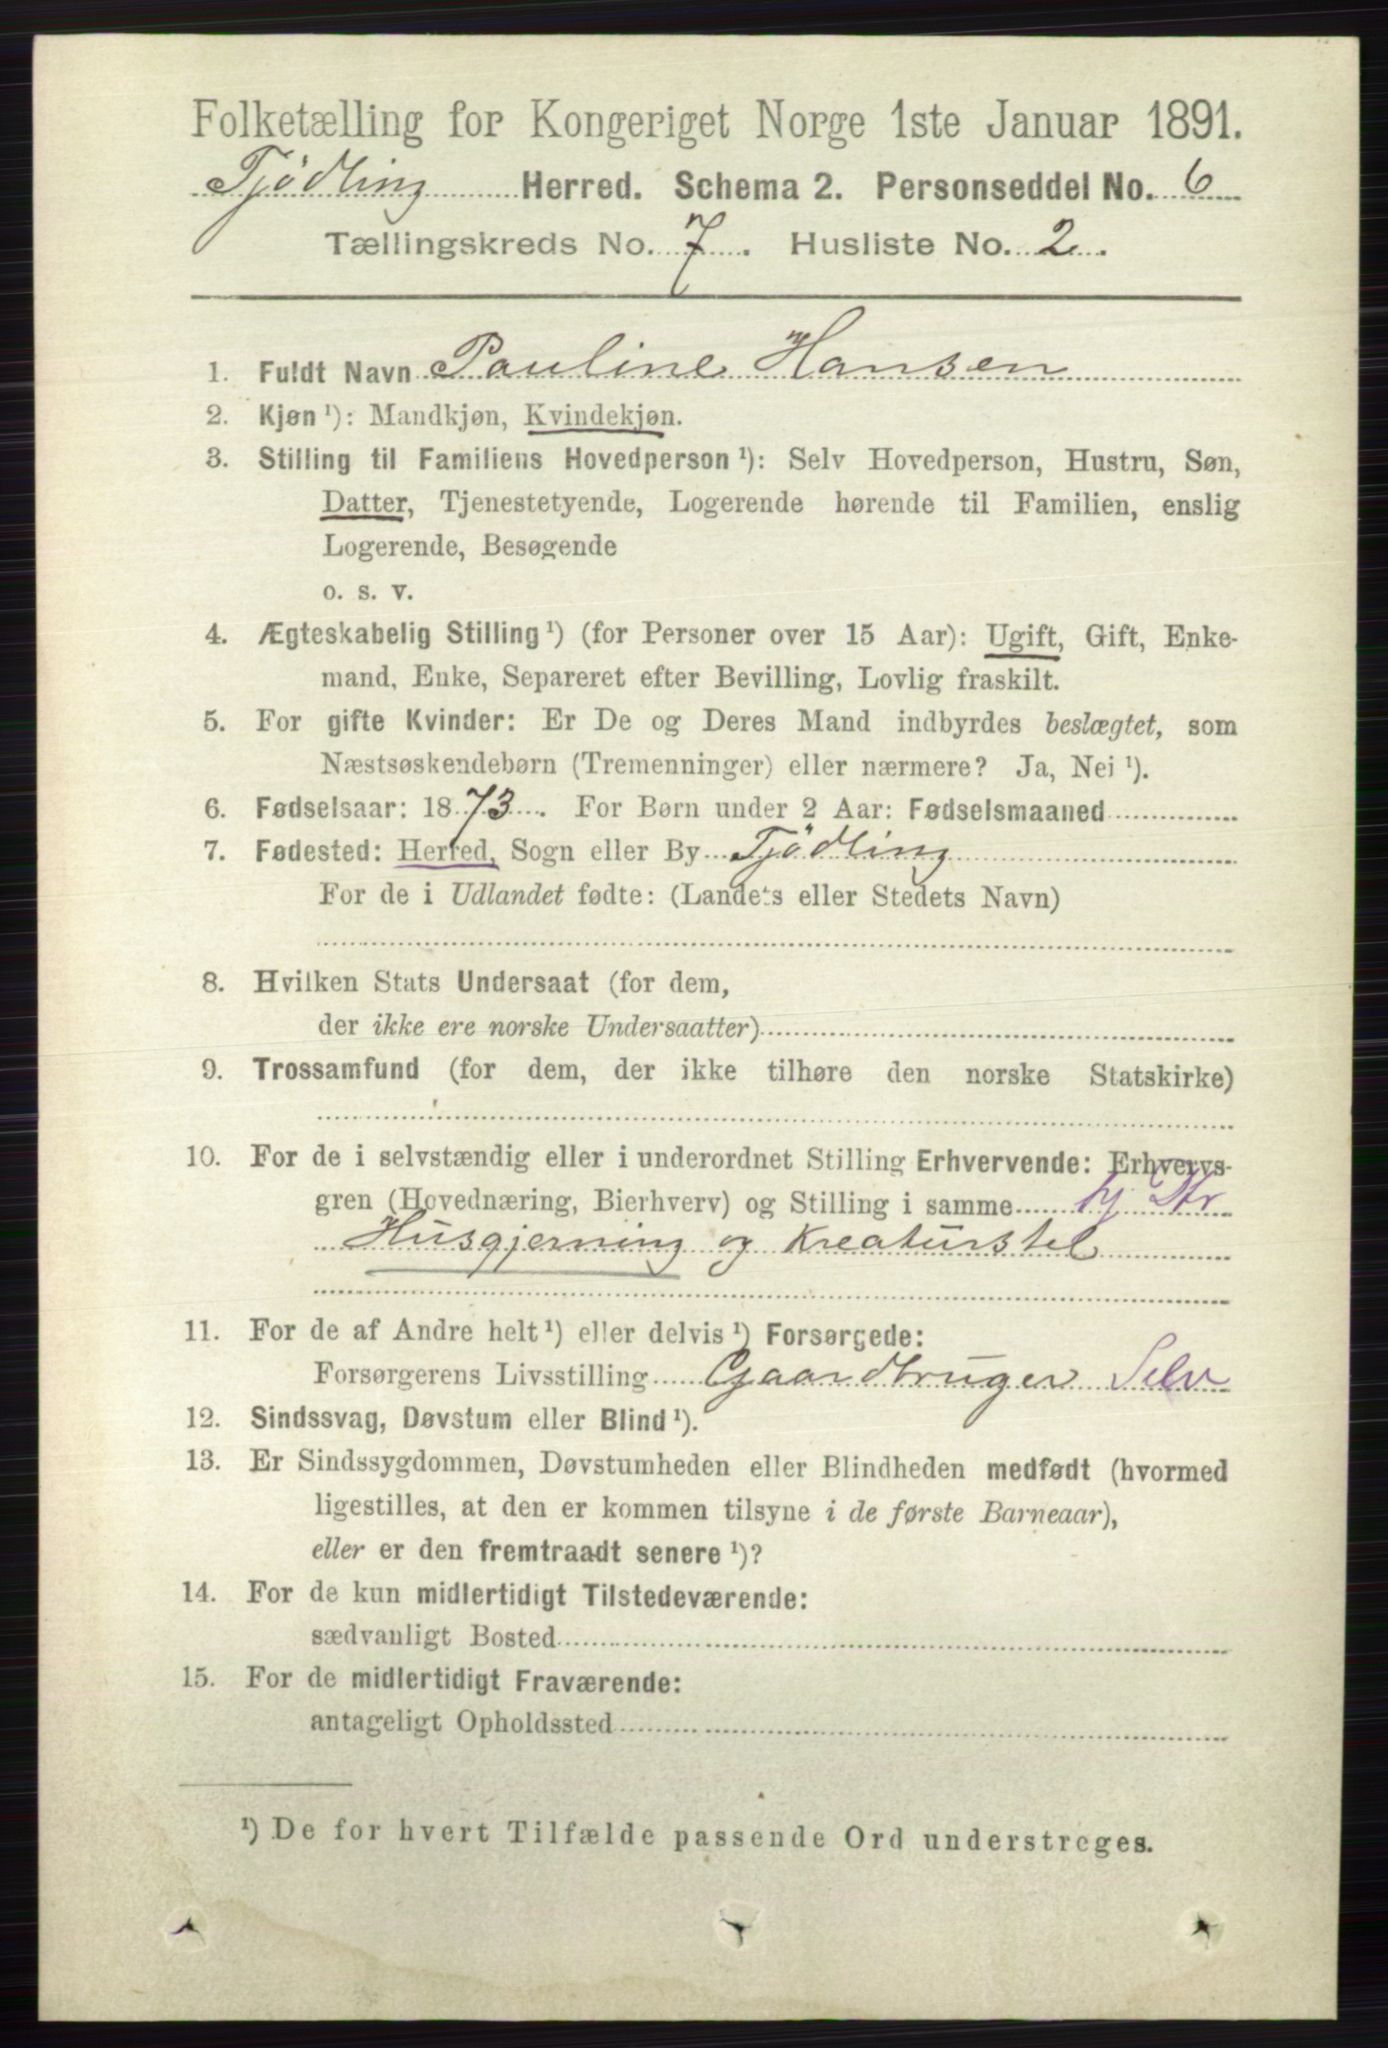 Folketælling for Kongeriget Norge 1ste Januar 1891.
Tjödling Herred. Schema 2. Personseddel No. 6
Tællingskreds No. 7. Husliste No. 2.
1. Fuldt Navn Pauline Hansen
2. Kjøn ¹): Mandkjøn, Kvindekjøn.
3. Stilling til Familiens Hovedperson ¹): Selv Hovedperson, Hustru, Søn,
Datter, Tjenestetyende, Logerende hørende til Familien, enslig
Logerende, Besøgende
o. s. v.
4. Ægteskabelig Stilling ¹) (for Personer over 15 Aar): Ugift, Gift, Enke-
mand, Enke, Separeret efter Bevilling, Lovlig fraskilt.
5. For gifte Kvinder: Er De og Deres Mand indbyrdes beslægtet, som
Næstsøskendebørn (Tremenninger) eller nærmere? Ja, Nei ¹).
6. Fødselsaar: 1873. For Børn under 2 Aar: Fødselsmaaned
7. Fødested: Herred, Sogn eller By Tjödling
For de i Udlandet fødte: (Landets eller Stedets Navn)
8. Hvilken Stats Undersaat (for dem,
der ikke ere norske Undersaatter)
9. Trossamfund (for dem, der ikke tilhøre den norske Statskirke)
10. For de i selvstændig eller i underordnet Stilling Erhvervende: Erhvervs-
gren (Hovednæring, Bierhverv) og Stilling i samme hj Dtr
Husgjerning og Kreaturstel
11. For de af Andre helt ¹) eller delvis ¹) Forsørgede:
Forsørgerens Livsstilling Gaardbruger Selv
12. Sindssvag, Døvstum eller Blind ¹).
13. Er Sindssygdommen, Døvstumheden eller Blindheden medfødt (hvormed
ligestilles, at den er kommen tilsyne i de første Barneaar),
eller er den fremtraadt senere ¹)?
14. For de kun midlertidigt Tilstedeværende:
sædvanligt Bosted
15. For de midlertidigt Fraværende:
antageligt Opholdssted
¹) De for hvert Tilfælde passende Ord understreges.